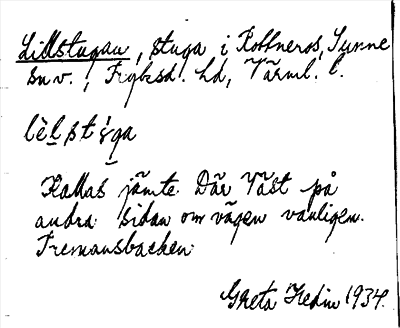 Lillstugan, stuga i Rottneros, Sunne
sn v., Frykesd. hd, Värml. l.
lèl̠st ú̠ga
Kallas jämte Där Väst på
andra sidan om vägen vanligen.
Tremansbacken.
Greta Hedin 1934.